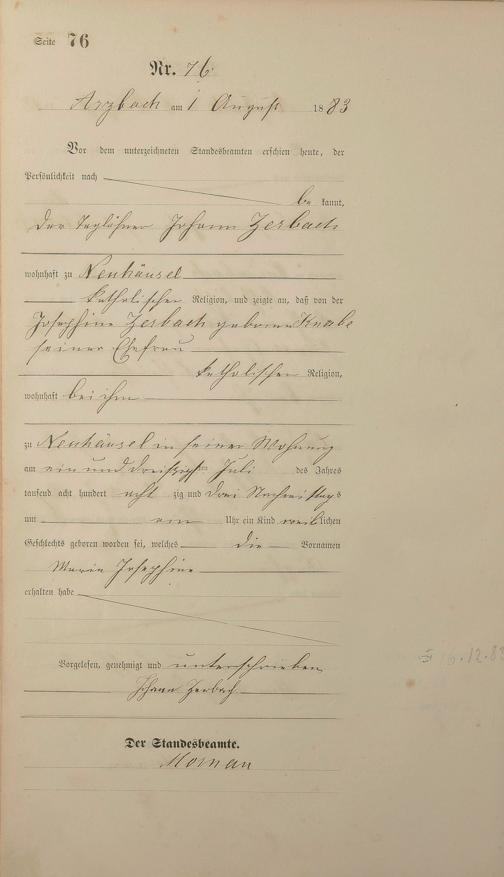 Seite 76
Nr. 76
Arzbach am 1 August 1883
Vor dem unterzeichneten Standesbeamten erschien heute, der
Persönlichkeit nach
be kannt,
der Taglöhner Johann Zerbach
wohnhaft zu Neuhäusel
katholischer Religion, und zeigte an, daß von der
Josephine Zerbach geborene Knabe
seiner Ehefrau
katholischer Religion,
wohnhaft bei ihm
zu Neuhäusel in seiner Wohnung
am ein und dreißigsten Juli des Jahres
tausend acht hundert acht zig und drei Nachmittags
um ein Uhr ein Kind weiblichen
Geschlechts geboren worden sei, welches die Vornamen
Maria Josephine
erhalten habe
Vorgelesen, genehmigt und unterschrieben
Johann Zerbach
Der Standesbeamte.